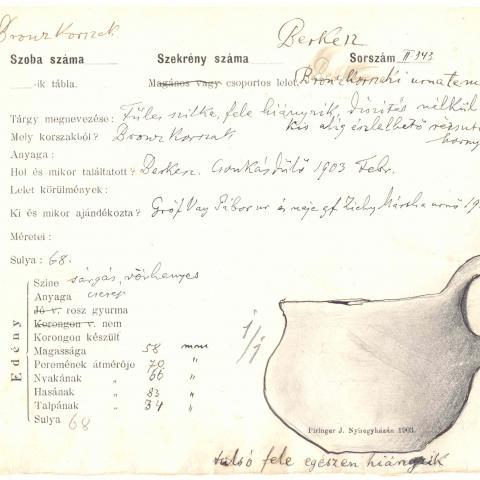 Bronz Korszak
Berkesz
Szoba száma Szekrény száma Sorszám II-343
-ik tábla. Magános vagy csoportos lelet. Bronzkorszaki urnatem
Tárgy megnevezése: Füles szilke, fele hiányzik, díszítés nélkül
kis alig észlelhető rézsutos
Mely korszakból? Bronz Korszak
Anyaga:
Hol és mikor találtatott? Berkesz. Csonkás dülő 1903 Febr.
Lelet körülmények:
Ki és mikor ajándékozta? Gróf Vay Gáborur és neje gf Zichy Mártha urnő 19
Méretei:
Sulya: 68.
Edény
Szine sárgás, vörhenyes
Anyaga cserép
Jó v. rosz gyurma
Korongon v. nem
Korongon készült
Magassága 58 mm
Peremének átmérője 70 "
Nyakának " 66 "
Hasának " 83 "
Talpának " 34 "
Sulya 68
1/1
Piringer J. Nyiregyházán 1903.
tulsó fele egészen hiányzik